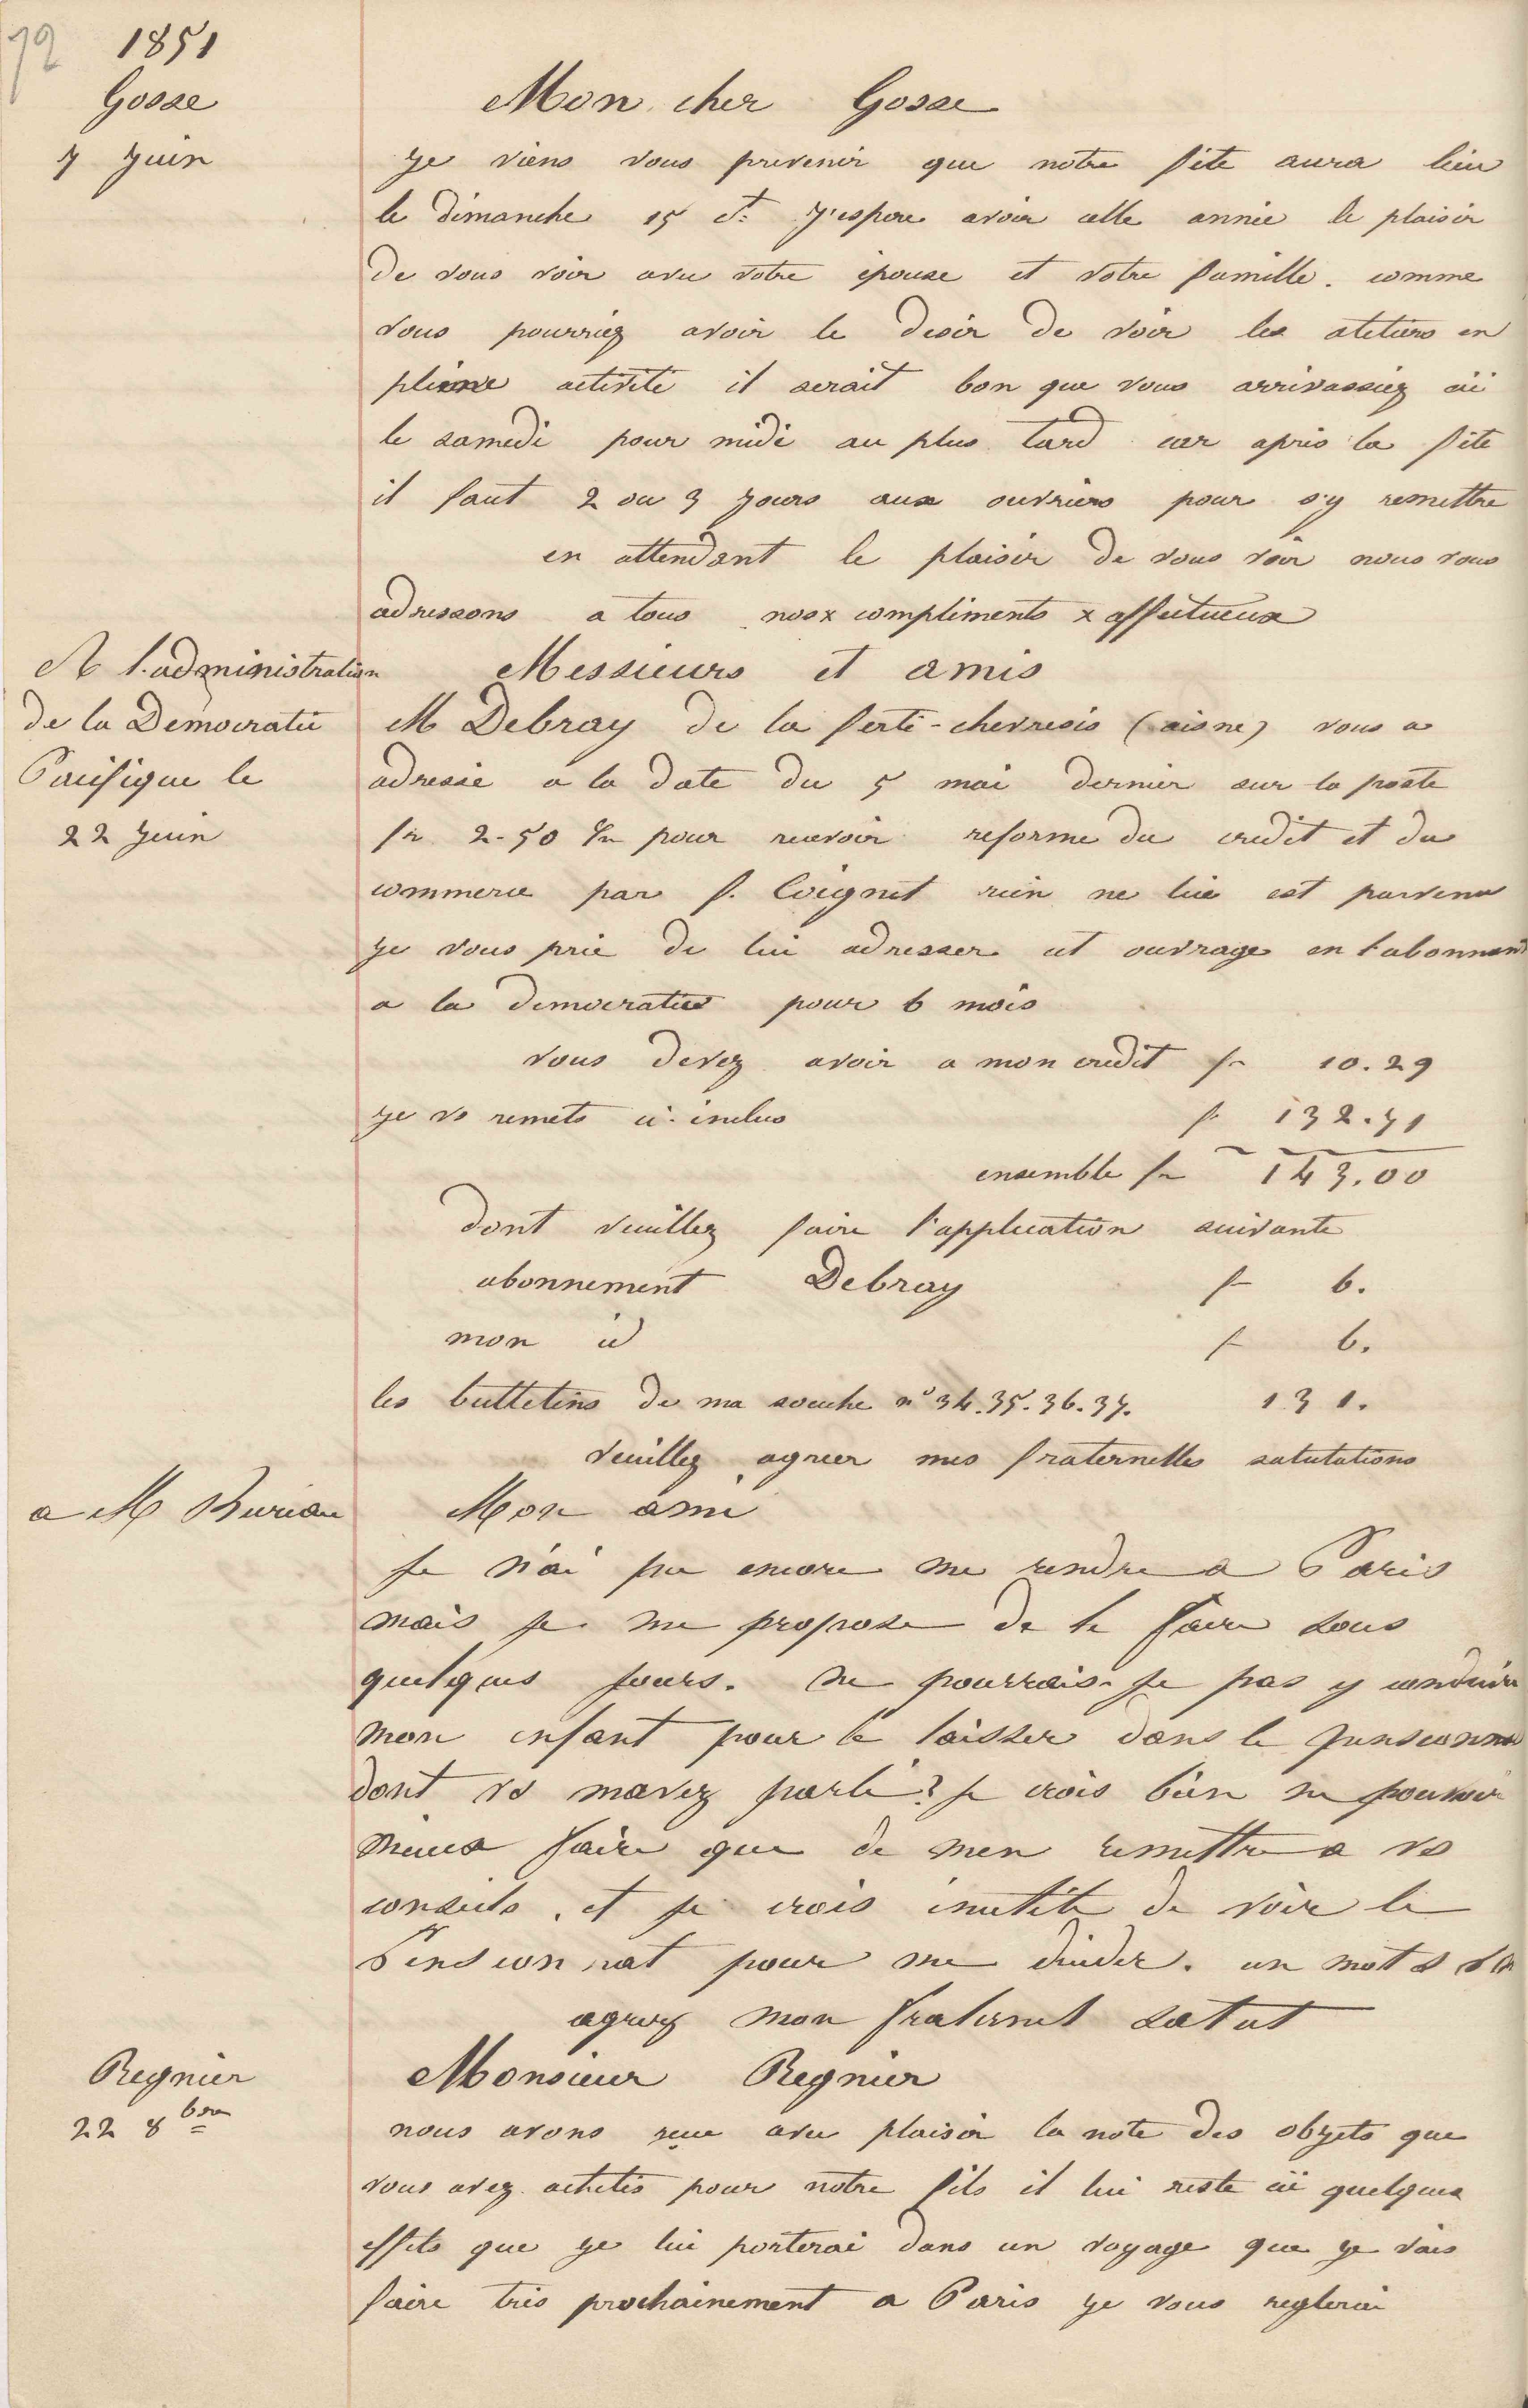 72 1851
Gosse
7 Juin
Mon cher Gosse
Je viens vous prevenir que notre fête aura lieu
le dimanche 15 ct. J'espere avoir cette année le plaisir
de vous voir avec votre épouse et votre famille. comme
vous pourriez avoir le desir de voir les ateliers en
pleine activité il serait bon que vous arrivassiez ici
le samedi pour midi au plus tard car après la fête
il faut 2 ou 3 jours aux ouvriers pour s'y remettre
en attendant le plaisir de vous voir nous vous
adressons a tous nos x compliments x affectueux
A l'administration
de la Democratie
Pacifique le
22 Juin
Messieurs et amis
M Debray de la ferté-chevresis (aisne) vous a
adressé a la date du 5 mai dernier sur la poste
fr 2-50 pour recevoir reforme du credit et du
commerce par f. Coignet rien ne lui est parvenu
je vous prie de lui adresser cet ouvrage en l'abonnant
a la democratie pour 6 mois
vous devez avoir a mon credit fr 10.29
je vs remets ci-inclus f. 132.71
ensemble fr 143.00
dont veuillez faire l'application suivante
abonnement Debray f 6.
mon id f 6.
les bulletins de ma souche n° 34.35.36.37. 131.
veuillez agréer mes fraternelles salutations
a M Burian
Mon ami
Je n'ai pu encore me rendre a Paris
mais je me propose de le faire sous
quelques jours. ne pourrais-je pas y conduire
mon enfant pour le laisser dans le pensionnat
dont vs mavez parlé? je crois bien ne pouvoir
mieux faire que de men remettre a vs
conseils, et je crois inutile de voir le
Pensionnat pour me decider. un mot s
agreez mon fraternel salut
Regnier
22 8bre
Monsieur Regnier
nous avons reçu avec plaisir la note des objets que
vous avez achetés pour notre fils il lui reste ici quelques
effets que je lui porterai dans un voyage que je vais
faire très prochainement a Paris je vous reglerai